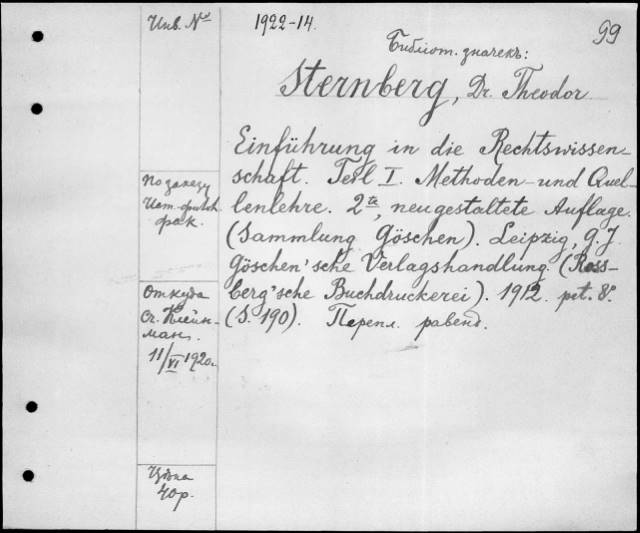 Инв. №
1922-14.
99
Библіот. значекъ:
Sternberg, Dr. Theodor
Einführung in die Rechtswissen-
schaft. Teil I. Methoden- und Quel-
lenlehre. 2te, neugestaltete Auflage.
(Sammlung Göschen). Leipzig, G. J.
Göschen'sche Verlagshandlung (Ross-
berg'sche Buchdruckerei). 1912. pet. 8°.
(S. 190). Перепл.
По заказу
фак.
Откуда
Сч. Клейн-
ман.
11/VI 1920г.
Цѣна
40р.